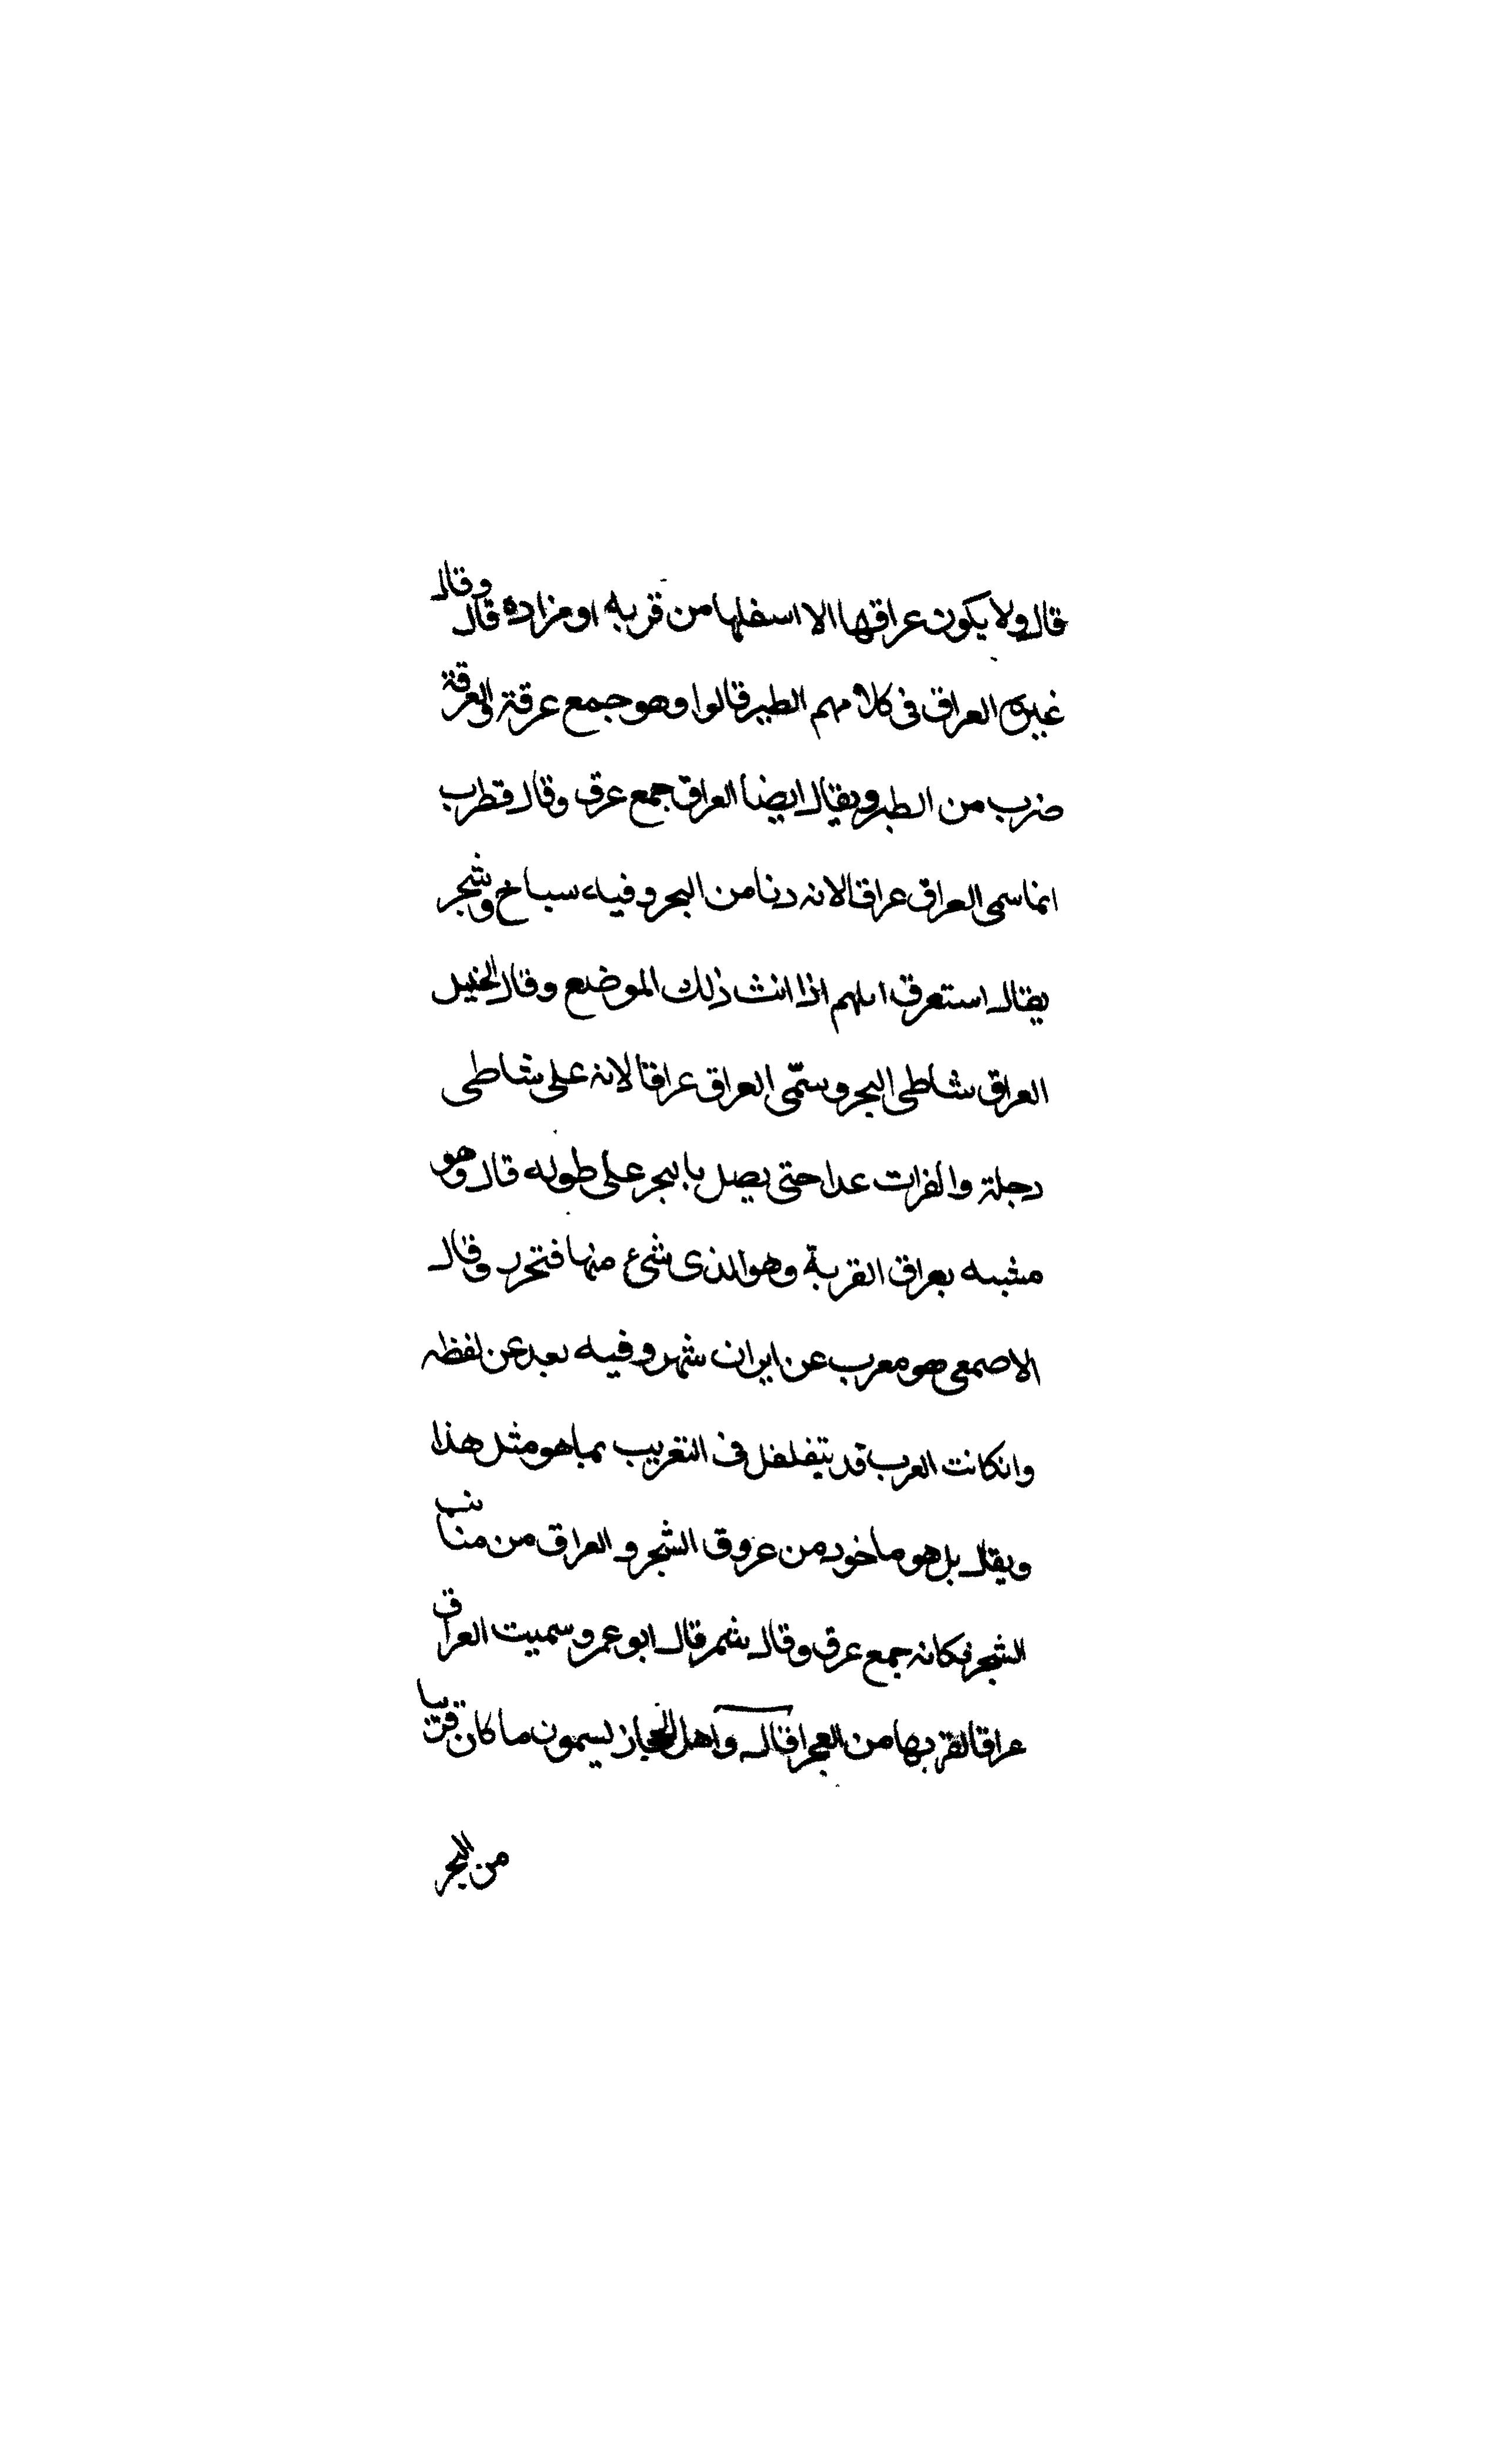 قال ولا يكون عراقها الا اسفلها من قربه او مزاده قال وقال
غيره العراق في كلامهم الطير قالوا وهو جمع عرقة والعرقة
ضرب من الطير ويقال ايضا العراق جمع عرق وقال قطرب
انما سمى العراق عراقا لانه دنا من البحر وفيه سباخ وشجر
يقال استعرق ابلهم اذا اتت ذلك الموضع وقال الخليل
العراق شاطى البحر وسمّى العراق عراقا لانه على شاطى
دجلة والفرات عدا حتى يصل بالبحر على طوله قال وهو
مشبه بعراق القربة وهو الذى شئ منها فتحرر وقال
الاصمعى هو معرب عن ايران شهر وفيه بعد عن لفظه
وانكانت العرب قد تتغلغل فى التعريب بما هو مثل هذا
ويقال بل هو ماخود من عروق الشجر والعراق من منابت
الشجر فكانه جمع عرق وقال شمر قال ابو عمرو سميت العراق
عراقا لقربها من البحر قال واهل الحجاز يسمون ما كان قريبا
من البحر